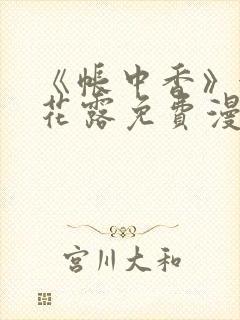 《帐中香》
花露免费漫
宫川大和